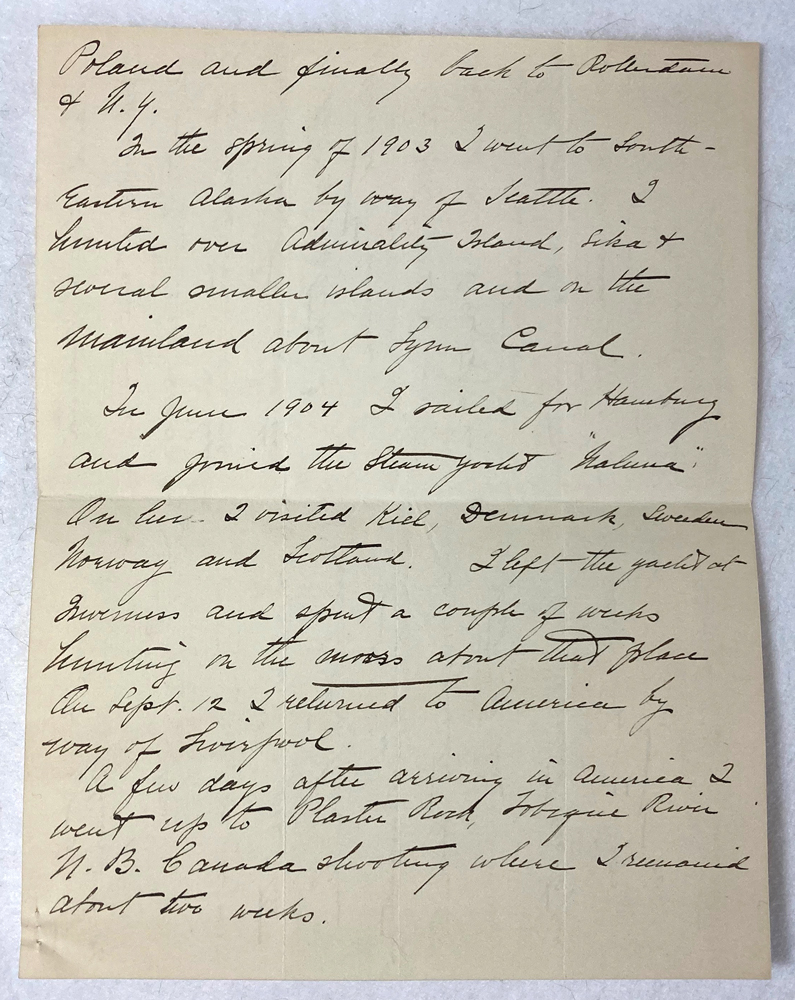 Poland and finally back to Rotterdam
& N.Y.
In the spring of 1903 I went to South-
Eastern Alaska by way of Seattle. I
hunted over Admirality Island, Sika &
several smaller islands and on the
mainland about Lynn Canal.
In June 1904 I sailed for Hamburg
and joined the Steam yacht
On her I visited Kiel, Denmark, Sweeden
Norway and Scotland. I left the yacht at
Inverness and spent a couple of weeks
hunting on the moors about that place
On Sept. 12 I returned to America by
way of Liverpool.
A few days after arriving in America I
went up to Plaster Rock, Tobique River
N.B. Canada shooting where I remained
about two weeks.